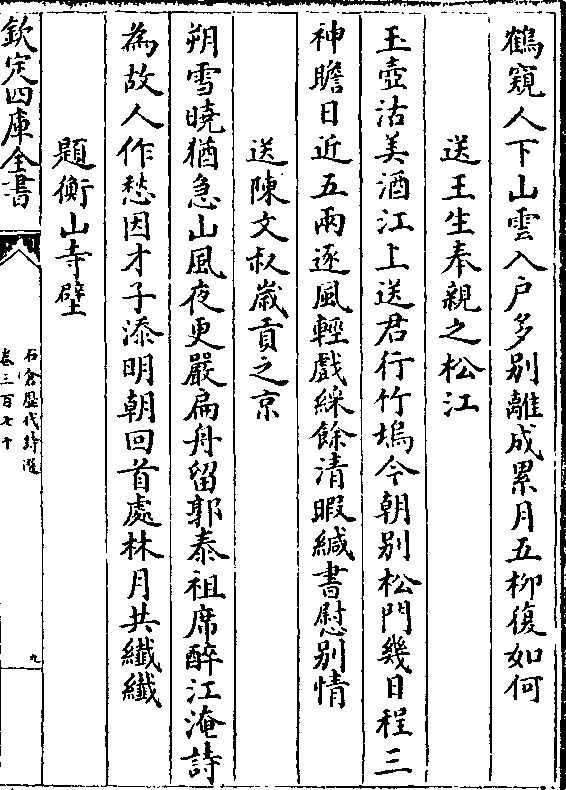 鶴窺人下山雲入户多别離成累月五柳復如何
送王生奉親之松江
玉壺沽美酒江上送君行竹塢今朝别松門幾日程三
神瞻日近五兩逐風輕戲綵餘清暇緘書慰别情
送陳文叔歳貢之京
朔雪曉猶急山風夜更嚴扁舟留郭泰祖席醉江淹詩
為故人作愁因才子添明朝回首處林月共纖纖
題衡山寺壁
欽定四庫全書
石倉歴代詩選
卷三百七十
九